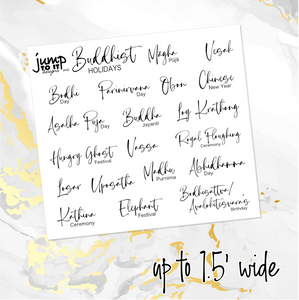 jump TO IT! designs
Buddhist HOLIDAYS
Magha Pūjā
Vesak
Bodhi Day
Parinirvana Day
Obon
Chinese New Year
Asalha Puja Day
Buddha Jayanti
Loy Krathong
Hungry Ghost Festival
Vassa
Royal Ploughing Ceremony
Losar
Uposatha
Madhu Purnima
Abhidhamma Day
Kathina Ceremony
Elephant Festival
Bodhisattva/
Avalokitesvara's
Birthday
up to 1.5' wide